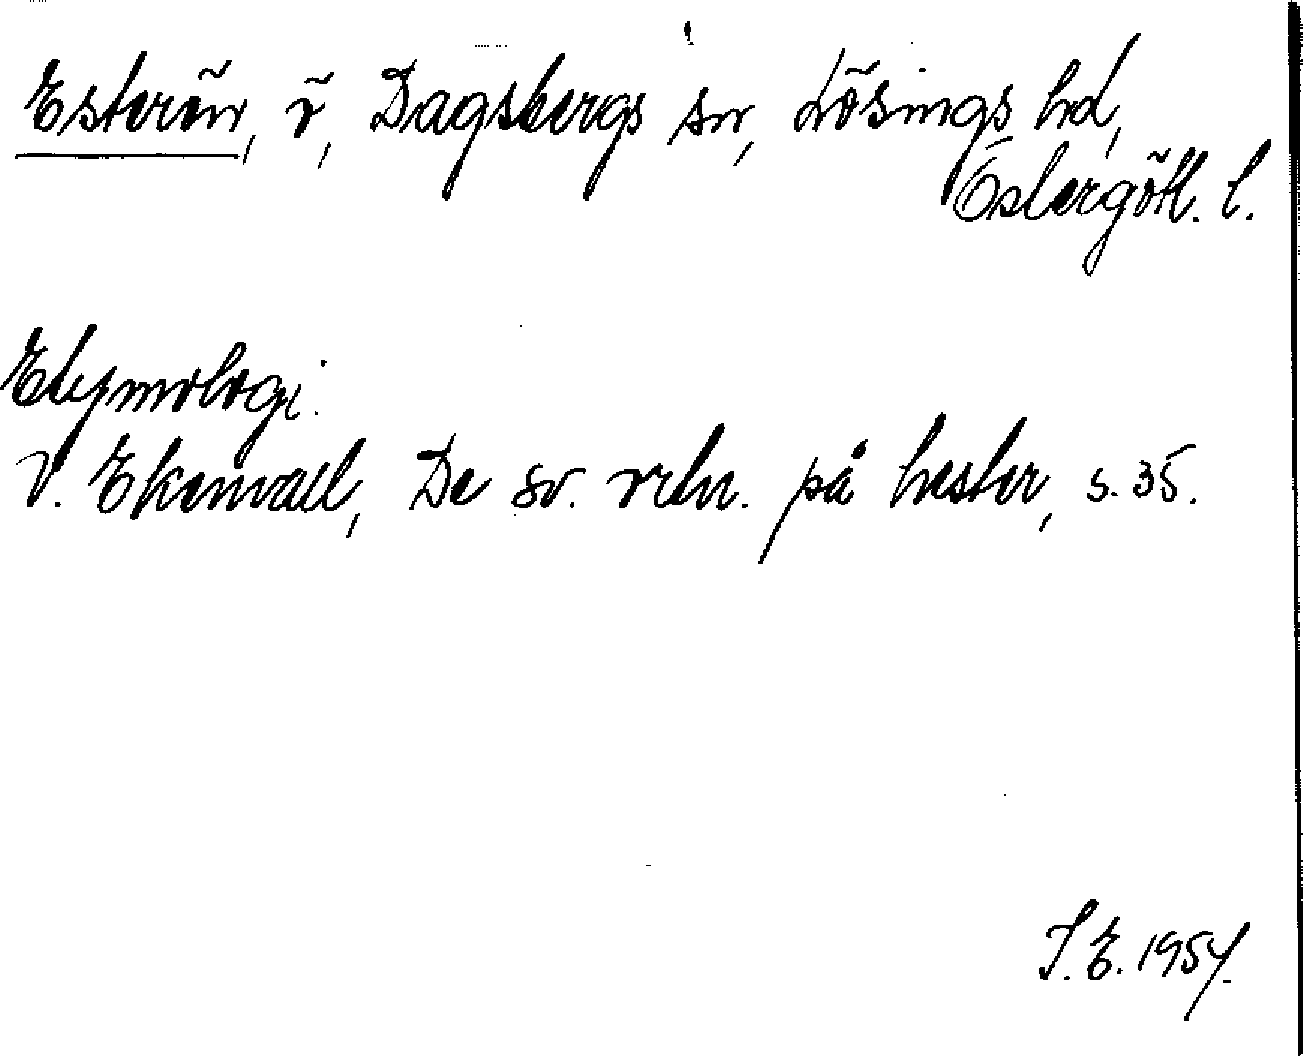 Esterön, ö, Dagsbergs sn, Lösings hd,
Östergötl. l.
Etymologi.
V. Ekenvall, De sv. ortn. på hester, s. 35.
I. E. 1954.